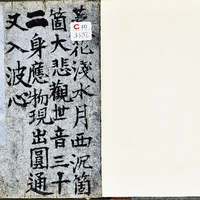 花淺水月西沉箇
箇大悲觀世音三十
二身應物現出圓通
又入波心
C